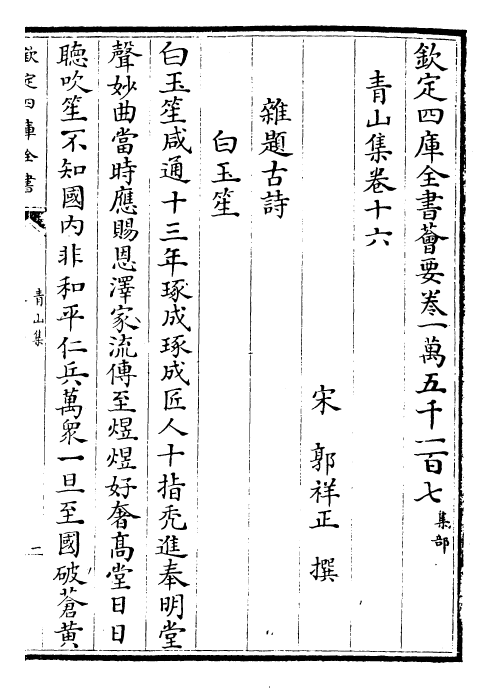 欽定四庫全書薈要卷一萬五千二百七集部
青山集卷十六
宋 郭祥正 撰
雜題古詩
白玉笙
白玉笙咸通十三年琢成琢成匠人十指秃進奉明堂
聲妙曲當時應賜恩澤家流傳至煜煜好奢髙堂日日
聴吹笙不知國内非和平仁兵萬衆一旦至國破蒼黄
欽定四庫全書
青山集
一